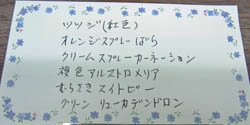 ツツジ(紅色)
オレンジスプレーばら
クリームスプレーカーネーション
複色アルストロメリア
むらさきスイトピー
グリーン リューカデンドロン